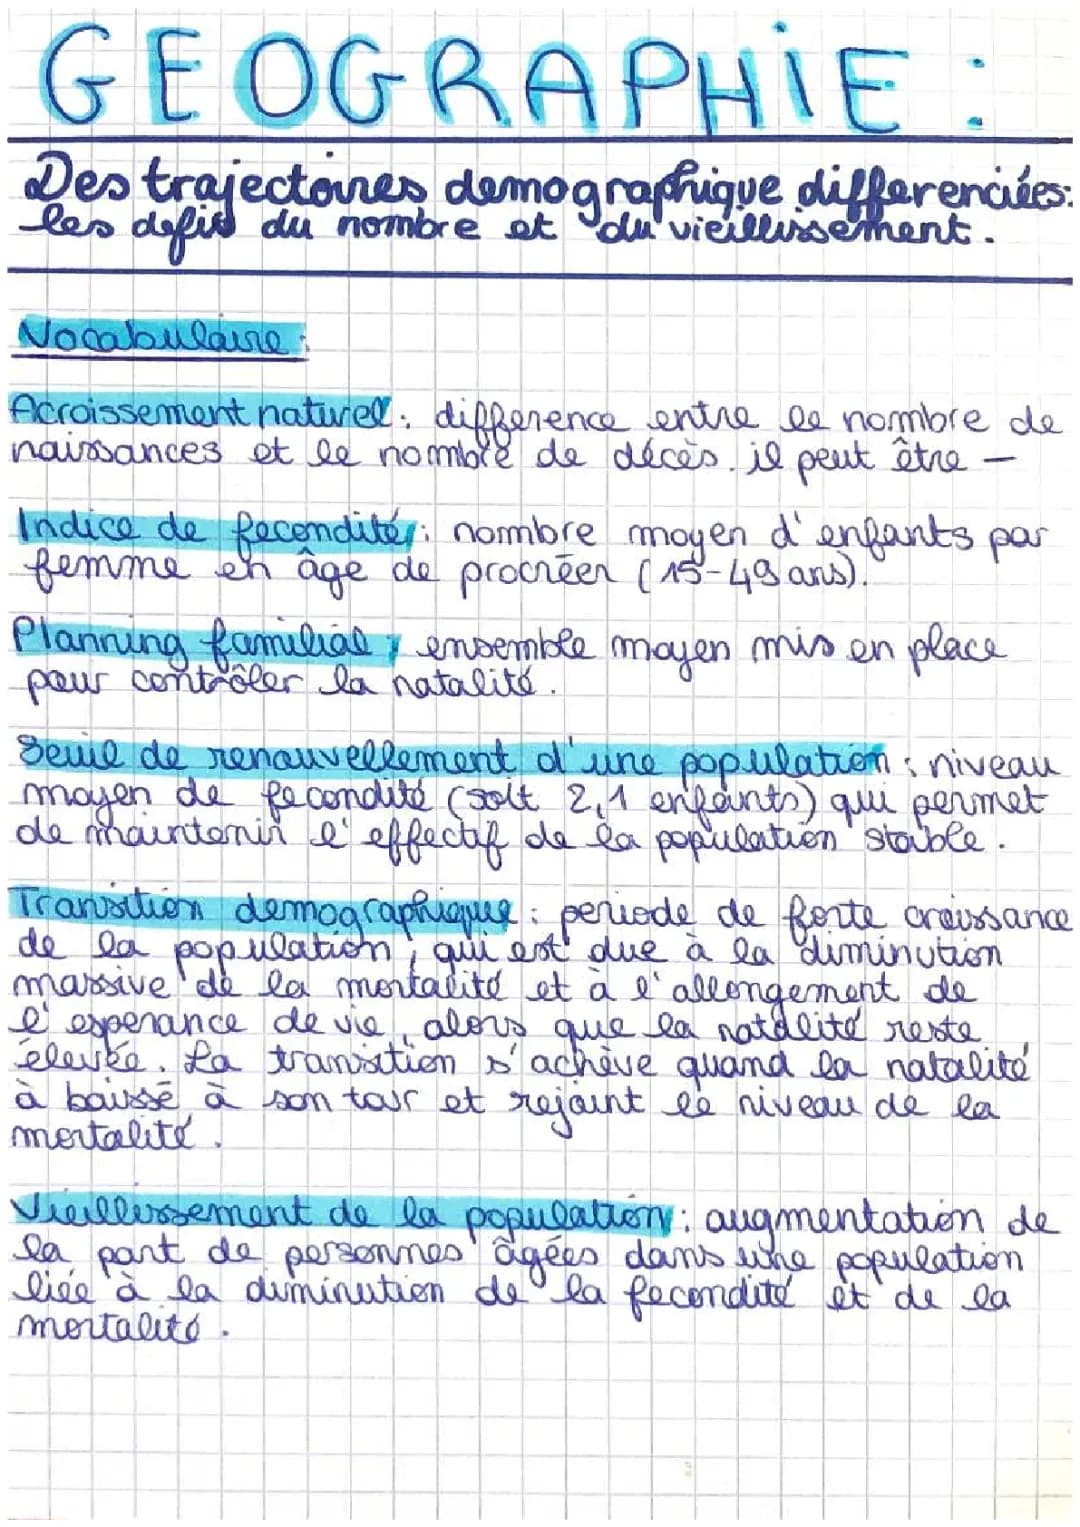 GEOGRAPHIE :
Des trajectoires demographique differenciées:
les defis du nombre et du vieillissement.
Vocabulaire :
Acroissement naturel : difference entre le nombre de
naissances et le nombre de décès. il peut être —
Indice de fecondité : nombre moyen d'enfants par
femme en âge de procréer (15-49 ans).
Planning familial : ensemble moyen mis en place
pour contrôler la natalité.
Seuil de renouvellement d'une population : niveau
moyen de fecondité (soit 2,1 enfants) qui permet
de maintenir l'effectif de la population stable.
Transition demographique : periode de forte croissance
de la population, qui est due à la diminution
massive de la mortalité et à l'allongement de
l'esperance de vie, alors que la natalité reste
élevée. La transition s'achève quand la natalité
à baissé à son tour et rejoint le niveau de la
mortalité.
Vieillissement de la population : augmentation de
la part de personnes âgées dans une population
liée à la diminution de la fecondité et de la
mortalité.